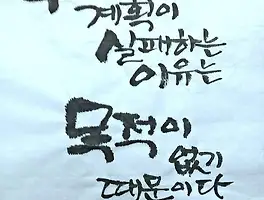 계획이
실패하는
이유는
목적이
없기
때문이다